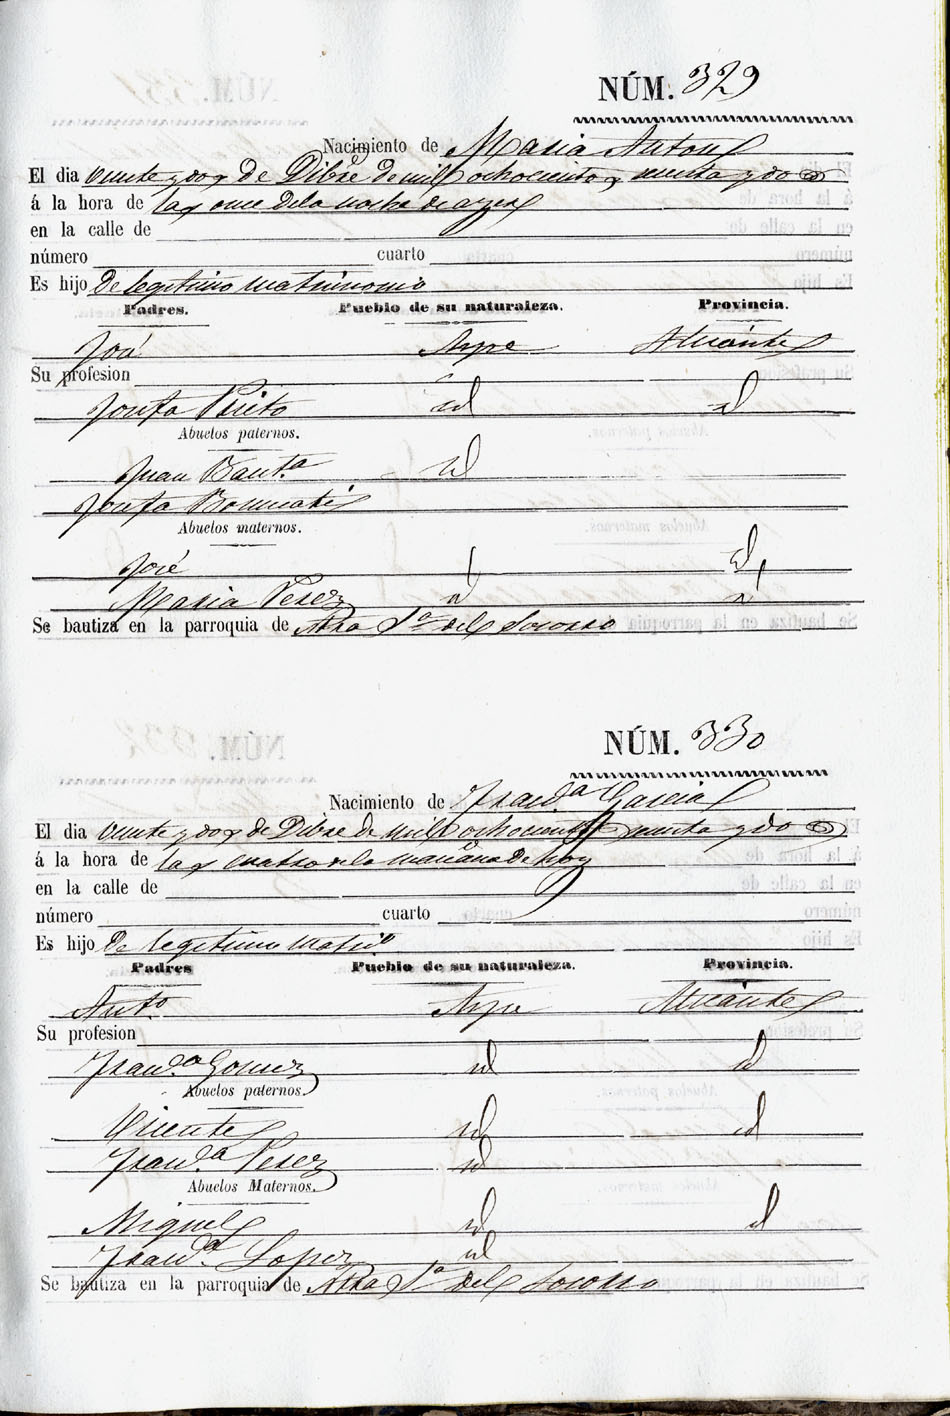 NÚM. 329
Nacimiento de Maria Anton
El dia veinte y dos de Dibre de mil ochocientos y dos
á la hora de las once de la noche de ayer
en la calle de
número cuarto
Es hijo de legitimo matrimonio
Padres. Pueblo de su naturaleza. Provincia.
José Aspe Alicante
Su profesion
Josefa Prieto id id
Abuelos paternos.
Juan Baut.a id
Josefa Bonmati
Abuelos maternos.
José id
Maria Perez id id
Se bautiza en la parroquia de Ntra Sa del Socorro
NÚM. 330
Nacimiento de Franca Garcia
El dia veinte y dos de Dibre de mil ochocientos y dos
á la hora de las cuatro de la mañana de hoy
en la calle de
número cuarto
Es hijo de legitimo matrio
Padres Pueblo de su naturaleza. Provincia.
Anto Aspe Alicante
Su profesion
Franca Gomez id id
Abuelos paternos.
Vicente id id
Franca Perez id
Abuelos Maternos.
Miguel id id
Franca Lopez id
Se bautiza en la parroquia de Ntra Sa del Socorro